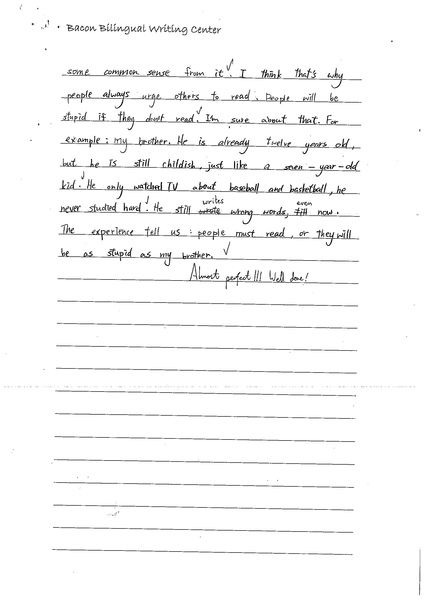 Bacon Bilingual Writing Center
some common sense from it. I think that's why
people always urge others to read. People will be
stupid if they don't read. I'm sure about that. For
example: my brother. He is already twelve years old,
but he is still childish, just like a seven-year-old
kid. He only watched TV about baseball and basketball, he
never studied hard. He still wrote writes wrong words, till even now.
The experience tell us: people must read, or they will
be as stupid as my brother.
Almost perfect!!! Well done!